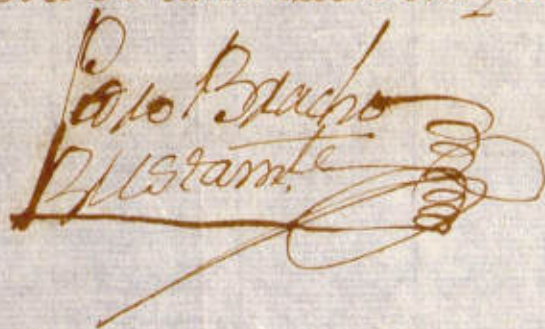 Pedro Bracho
Bustamte